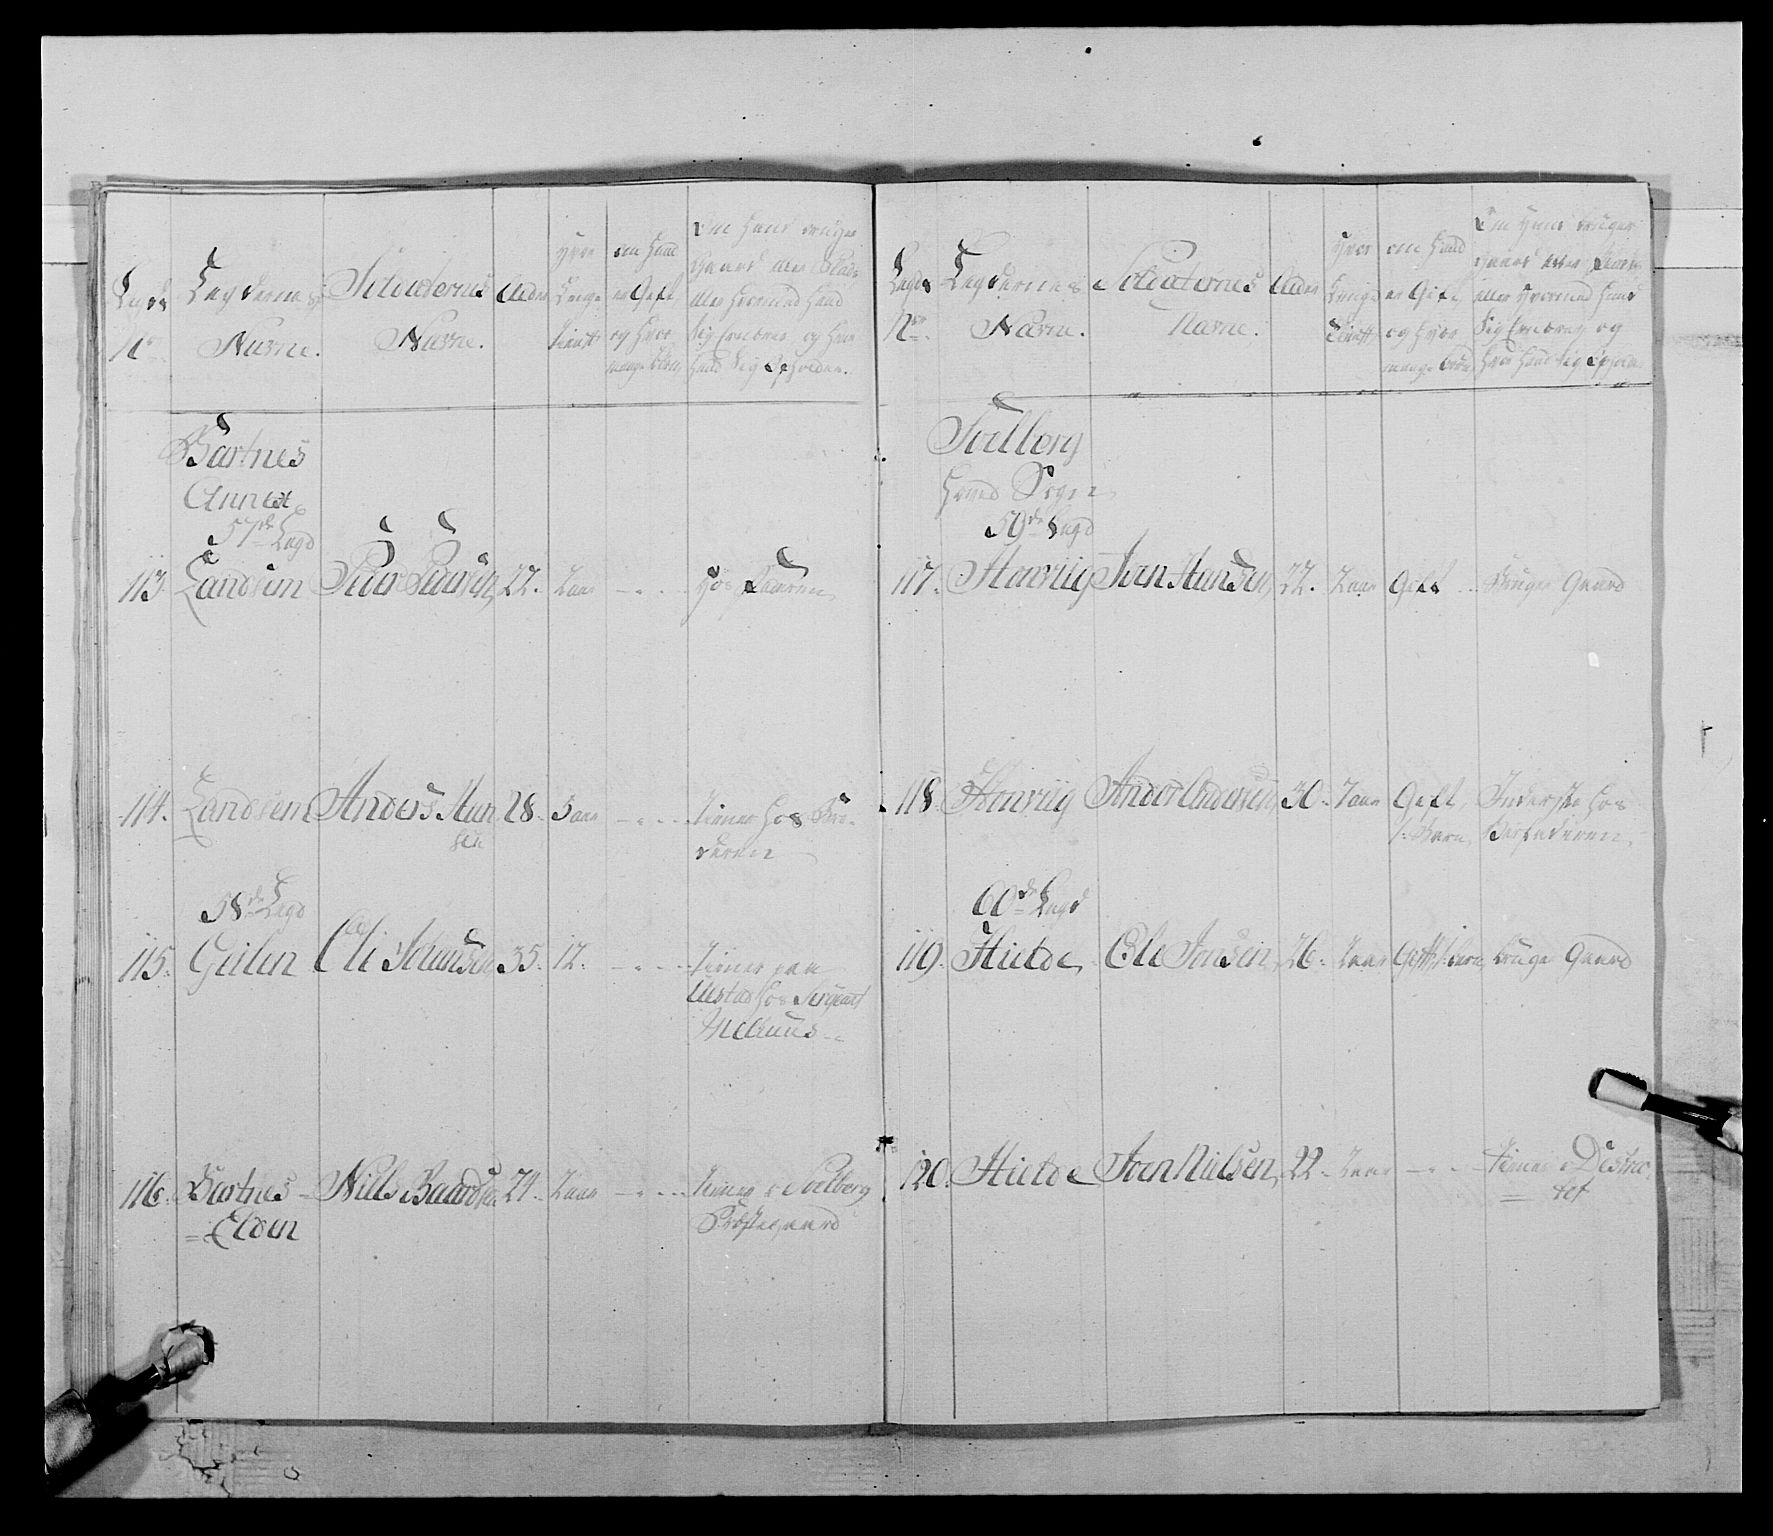 Legds No.
Legdernes Navne.
Soldaternes Navne.
Alder
Hvor Lenge tient
om hand er Gift, og hvor mange börn
Om hand bruger Gaard eller Plads, eller hvormed hand Sig Ernærer og hvor hand Sig Opholder.
Bartnes
Annex
57de Legd
113. Landsem Peder Pedersen, 22. 2 aar - . . hos Faderen,
114. Landsem Anders Han 28. 3 aar - . . . tiener hos Bro
sen
deren
58de Legd
115. Geilen Ole Johansen 35. 12. - . . . tiener paa
hos Sergeant
116. Bartnes Niels Baardsen 24. 2 aar - . . . tiener i Soelberg
= Elden
Præstegaard
Legds No.
Legdernes Navne.
Soldaternes Navne.
Alder
Hvor Lenge tient
om hand er Gift, og hvor mange börn
Om hand bruger Gaard eller Plads eller hvormed hand Sig Ernærer og hvor hand Sig Ophol
Soelberg
Hoved Sogn
59de Legd
117. Iven Hansen, 22. 2 aar Gift . . bruger Gaard
118. Andor Andersen, 30. 7 aar Gift, Inderste hos
1. Barn,
60de Legd
119. Hielde, Ole Jonsen, 26. 2 aar Gift, 1. barn, bruger Gaard
120. Hielde Iven Nielsen, 22. 2 aar - . . tiener i Distric
= tet